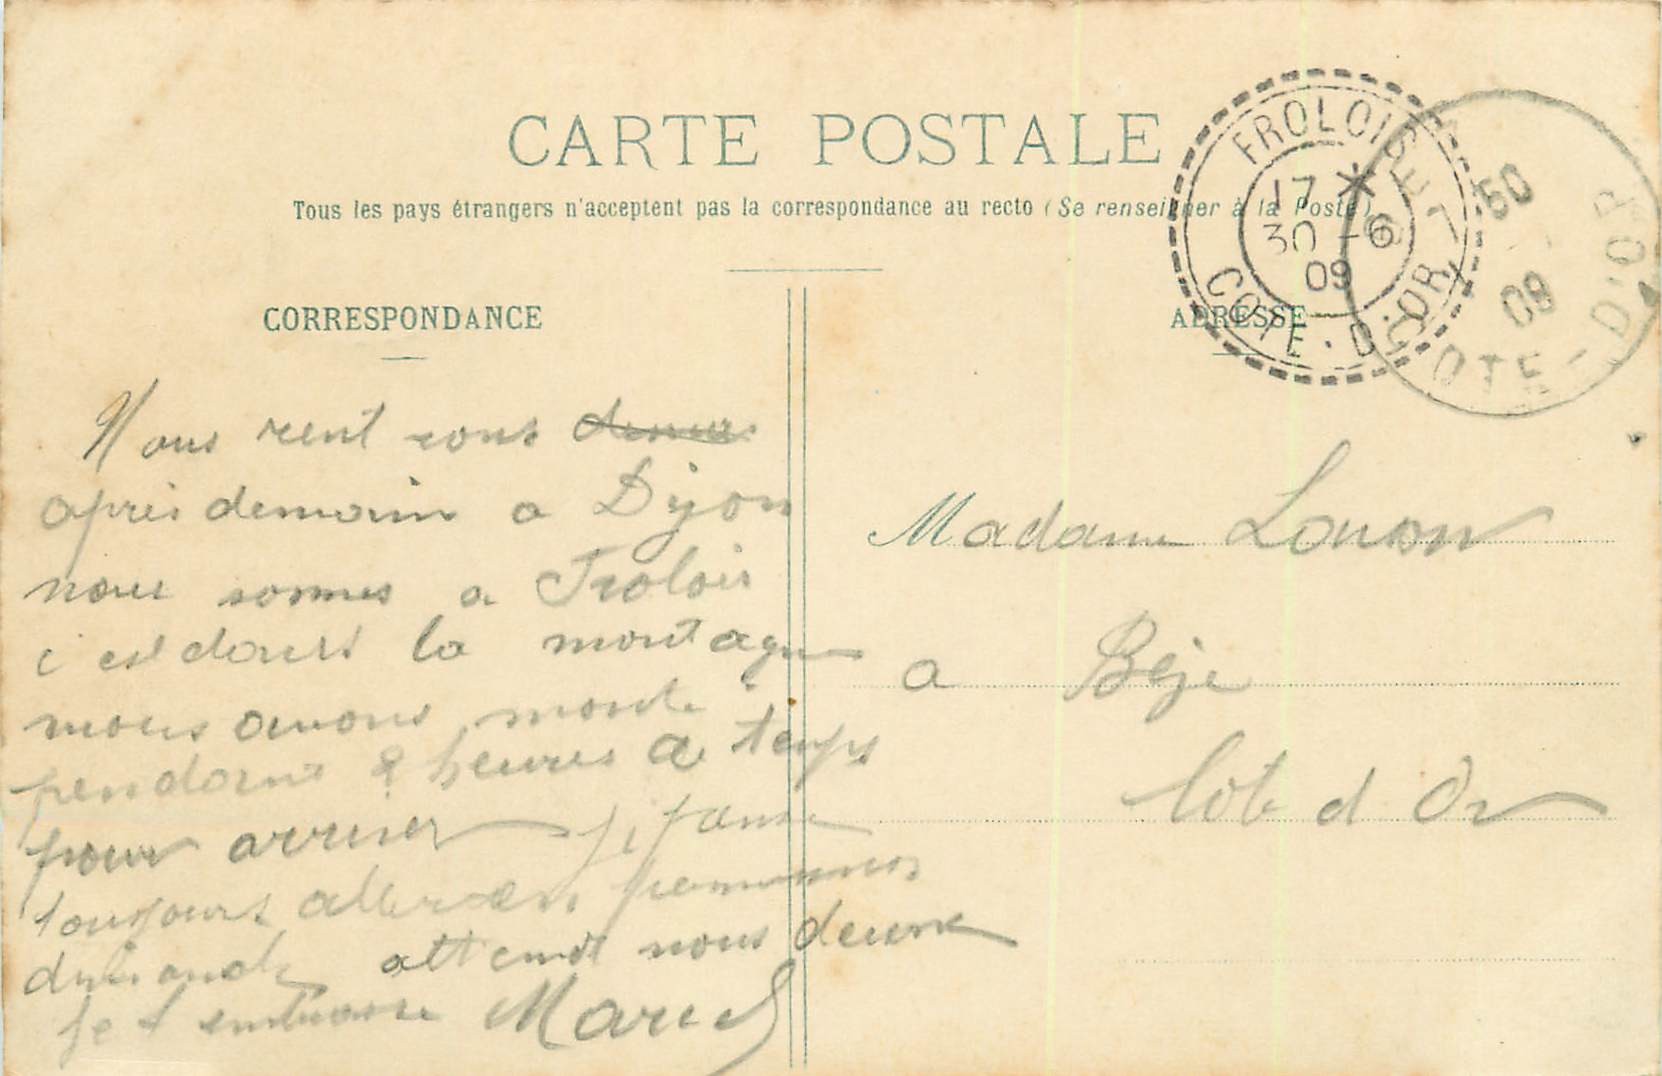 CARTE POSTALE
Tous les pays étrangers n'acceptent pas la correspondance au recto (Se renseigner à la Poste)
FROLOIS
17
30 - 6
09
COTE-D'OR
50
09
COTE-D'OR
CORRESPONDANCE
Nous rent rons
après demain a Dijon
nous sommes a Frolois
c'est dans la montagne
nous avons monte
pendant 2 heures a temps
pour arriver
toujours aller en
attend nous
je t embrasse Marie
ADRESSE
Madame
a Bèje
Cote d Or